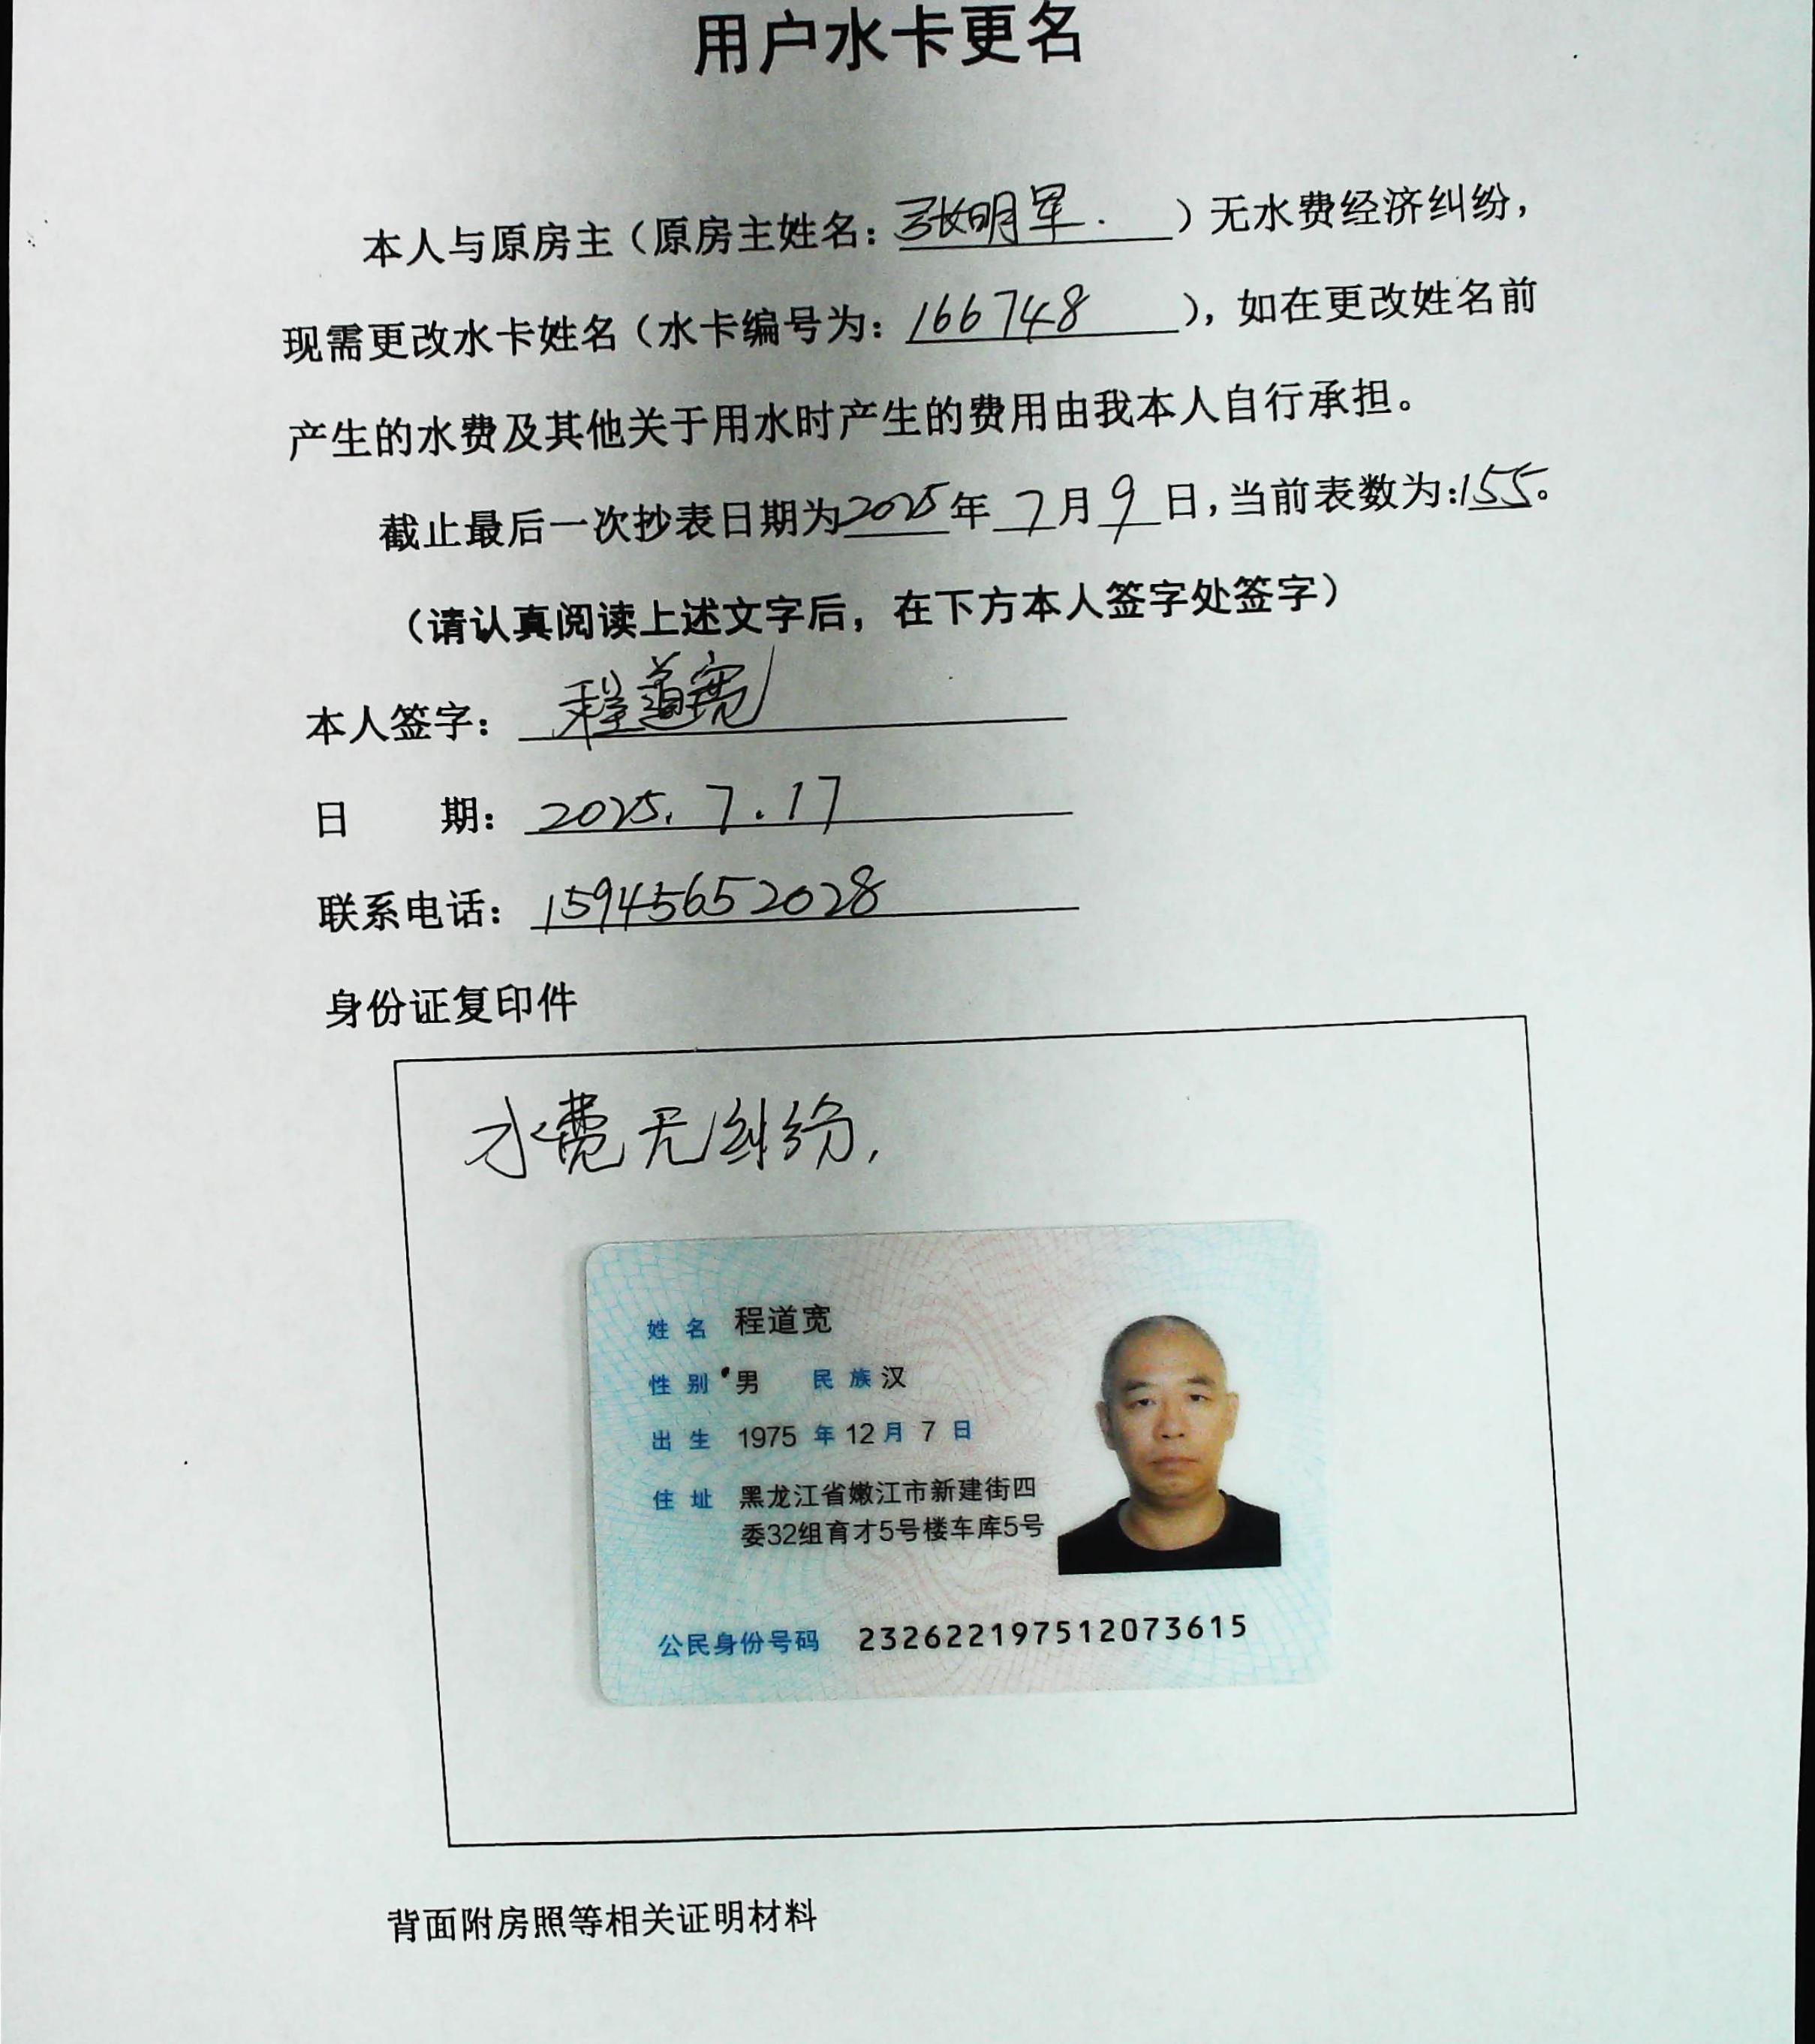 用户水卡更名
本人与原房主（原房主姓名：张明军.）无水费经济纠纷，
现需更改水卡姓名（水卡编号为：166748），如在更改姓名前
产生的水费及其他关于用水时产生的费用由我本人自行承担。
截止最后一次抄表日期为2025年7月9日，当前表数为：155。
（请认真阅读上述文字后，在下方本人签字处签字）
本人签字：程道宽
日 期：2025.7.17
联系电话：15945652028
身份证复印件
水费无纠纷，
姓名 程道宽
性别 男 民族 汉
出生 1975 年 12 月 7 日
住址 黑龙江省嫩江市新建街四
委32组育才5号楼车库5号
公民身份号码 232622197512073615
背面附房照等相关证明材料